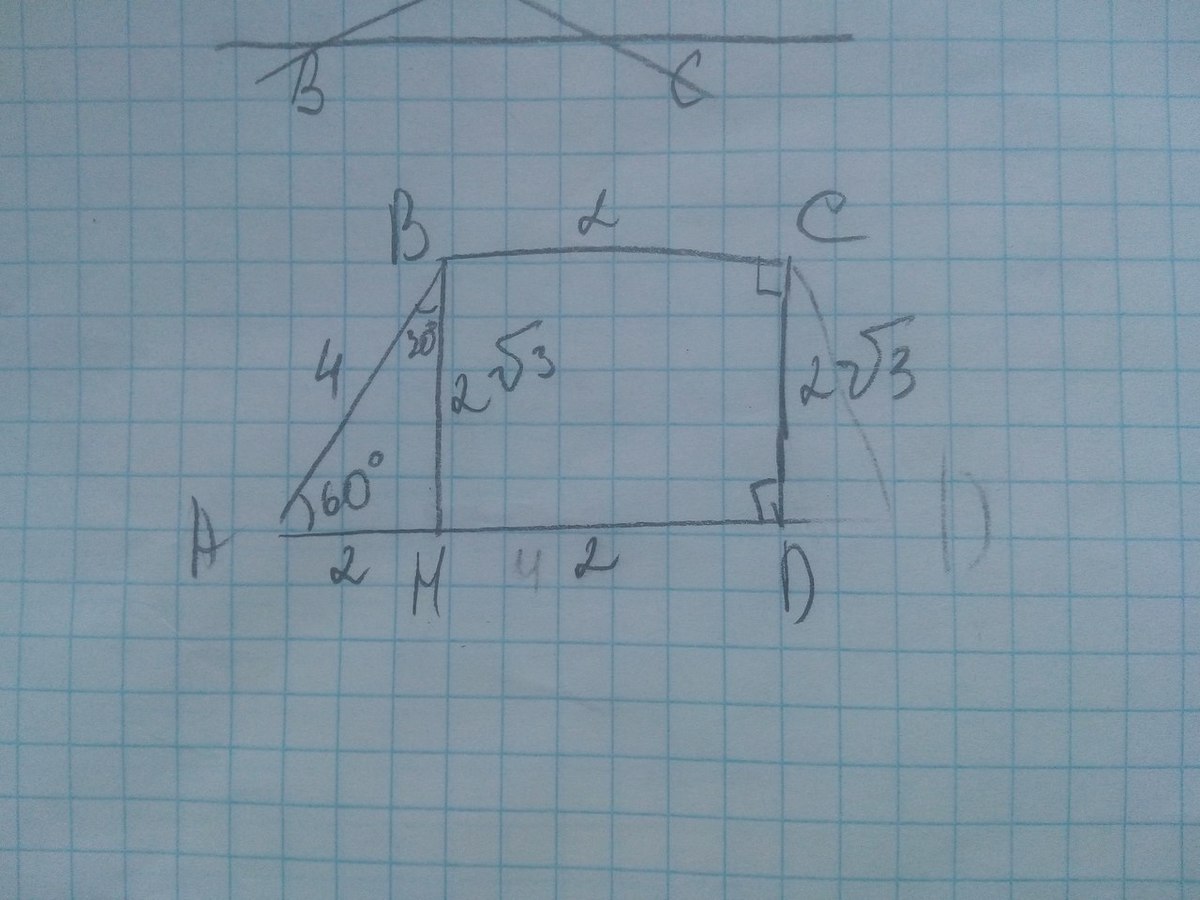 B C
B 2 C
4 30° 2√3 2√3
A 60° D
2 H 4 2 D